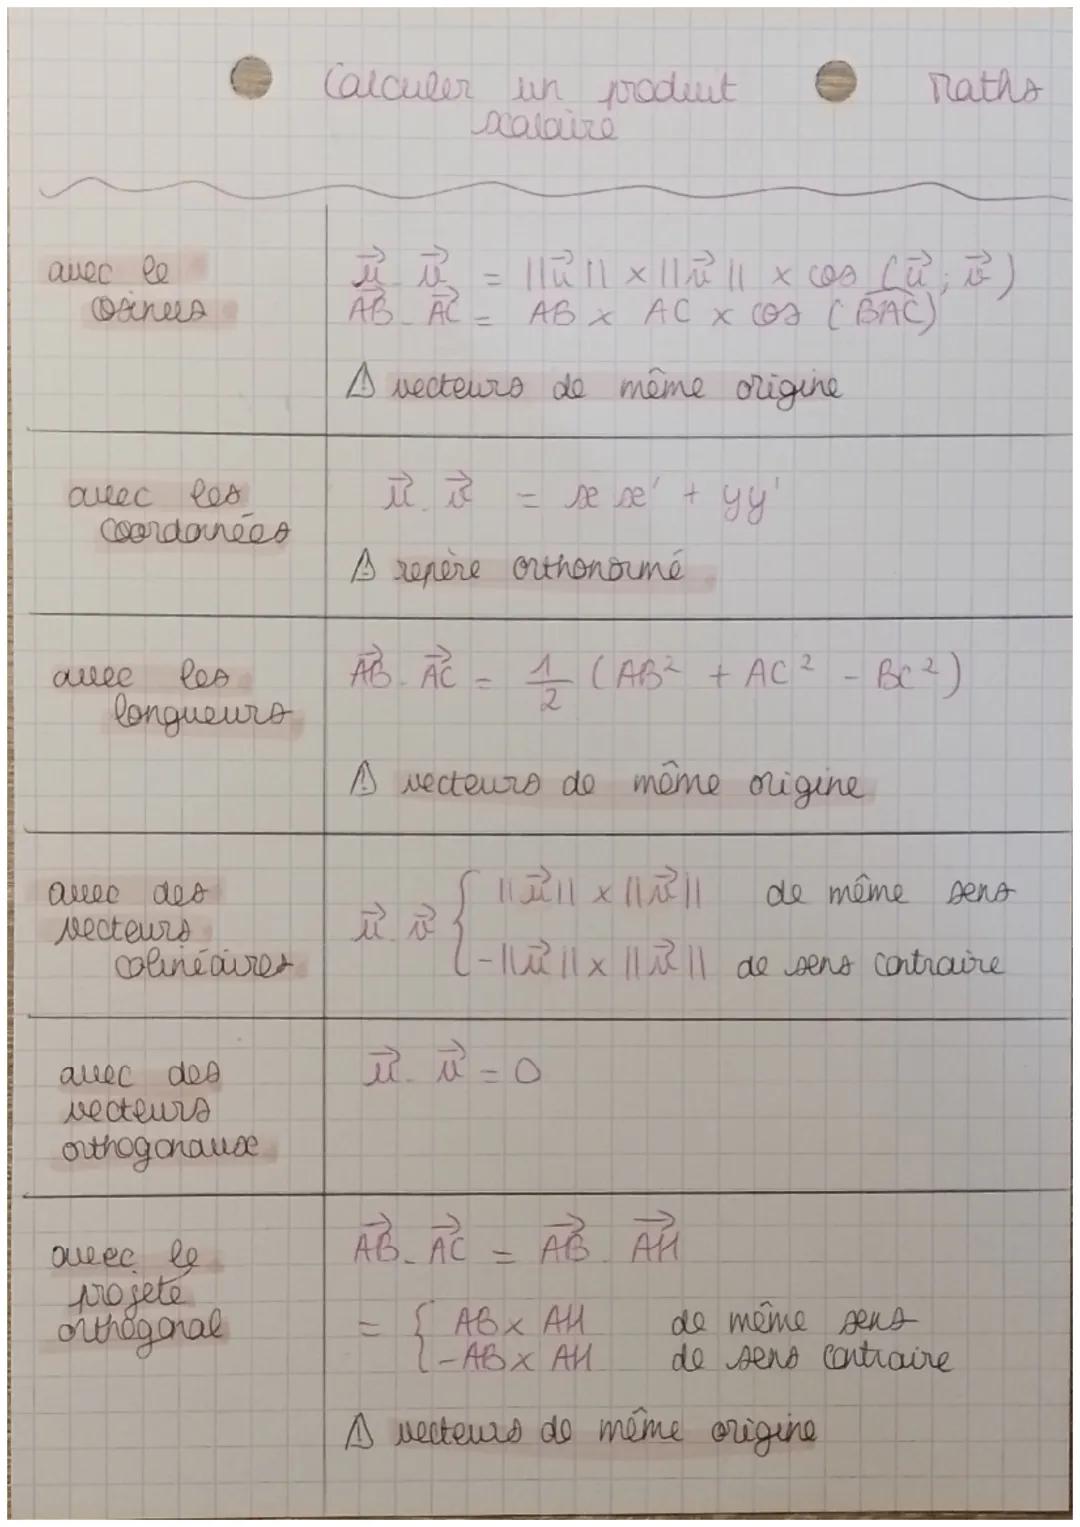 Calculer un produit
scalaire
Maths
avec le
cosinus
u⃗ . v⃗ = ||u⃗|| × ||v⃗|| × cos (u⃗ ; v⃗)
AB⃗ . AC⃗ = AB × AC × cos (B̂AC)
⚠ vecteurs de même origine
avec les
coordonées
u⃗ . v⃗ = xx' + yy'
⚠ repère orthonormé
avec les
longueurs
AB⃗ . AC⃗ = 1/2 (AB² + AC² - BC²)
⚠ vecteurs de même origine
avec des
vecteurs
colinéaires
u⃗ . v⃗ { ||u⃗|| × ||v⃗|| de même sens
-||u⃗|| × ||v⃗|| de sens contraire
avec des
vecteurs
orthogonaux
u⃗ . v⃗ = 0
avec le
projeté
orthogonal
AB⃗ . AC⃗ = AB⃗ . AH⃗
= { AB × AH de même sens
-AB × AH de sens contraire
⚠ vecteurs de même origine